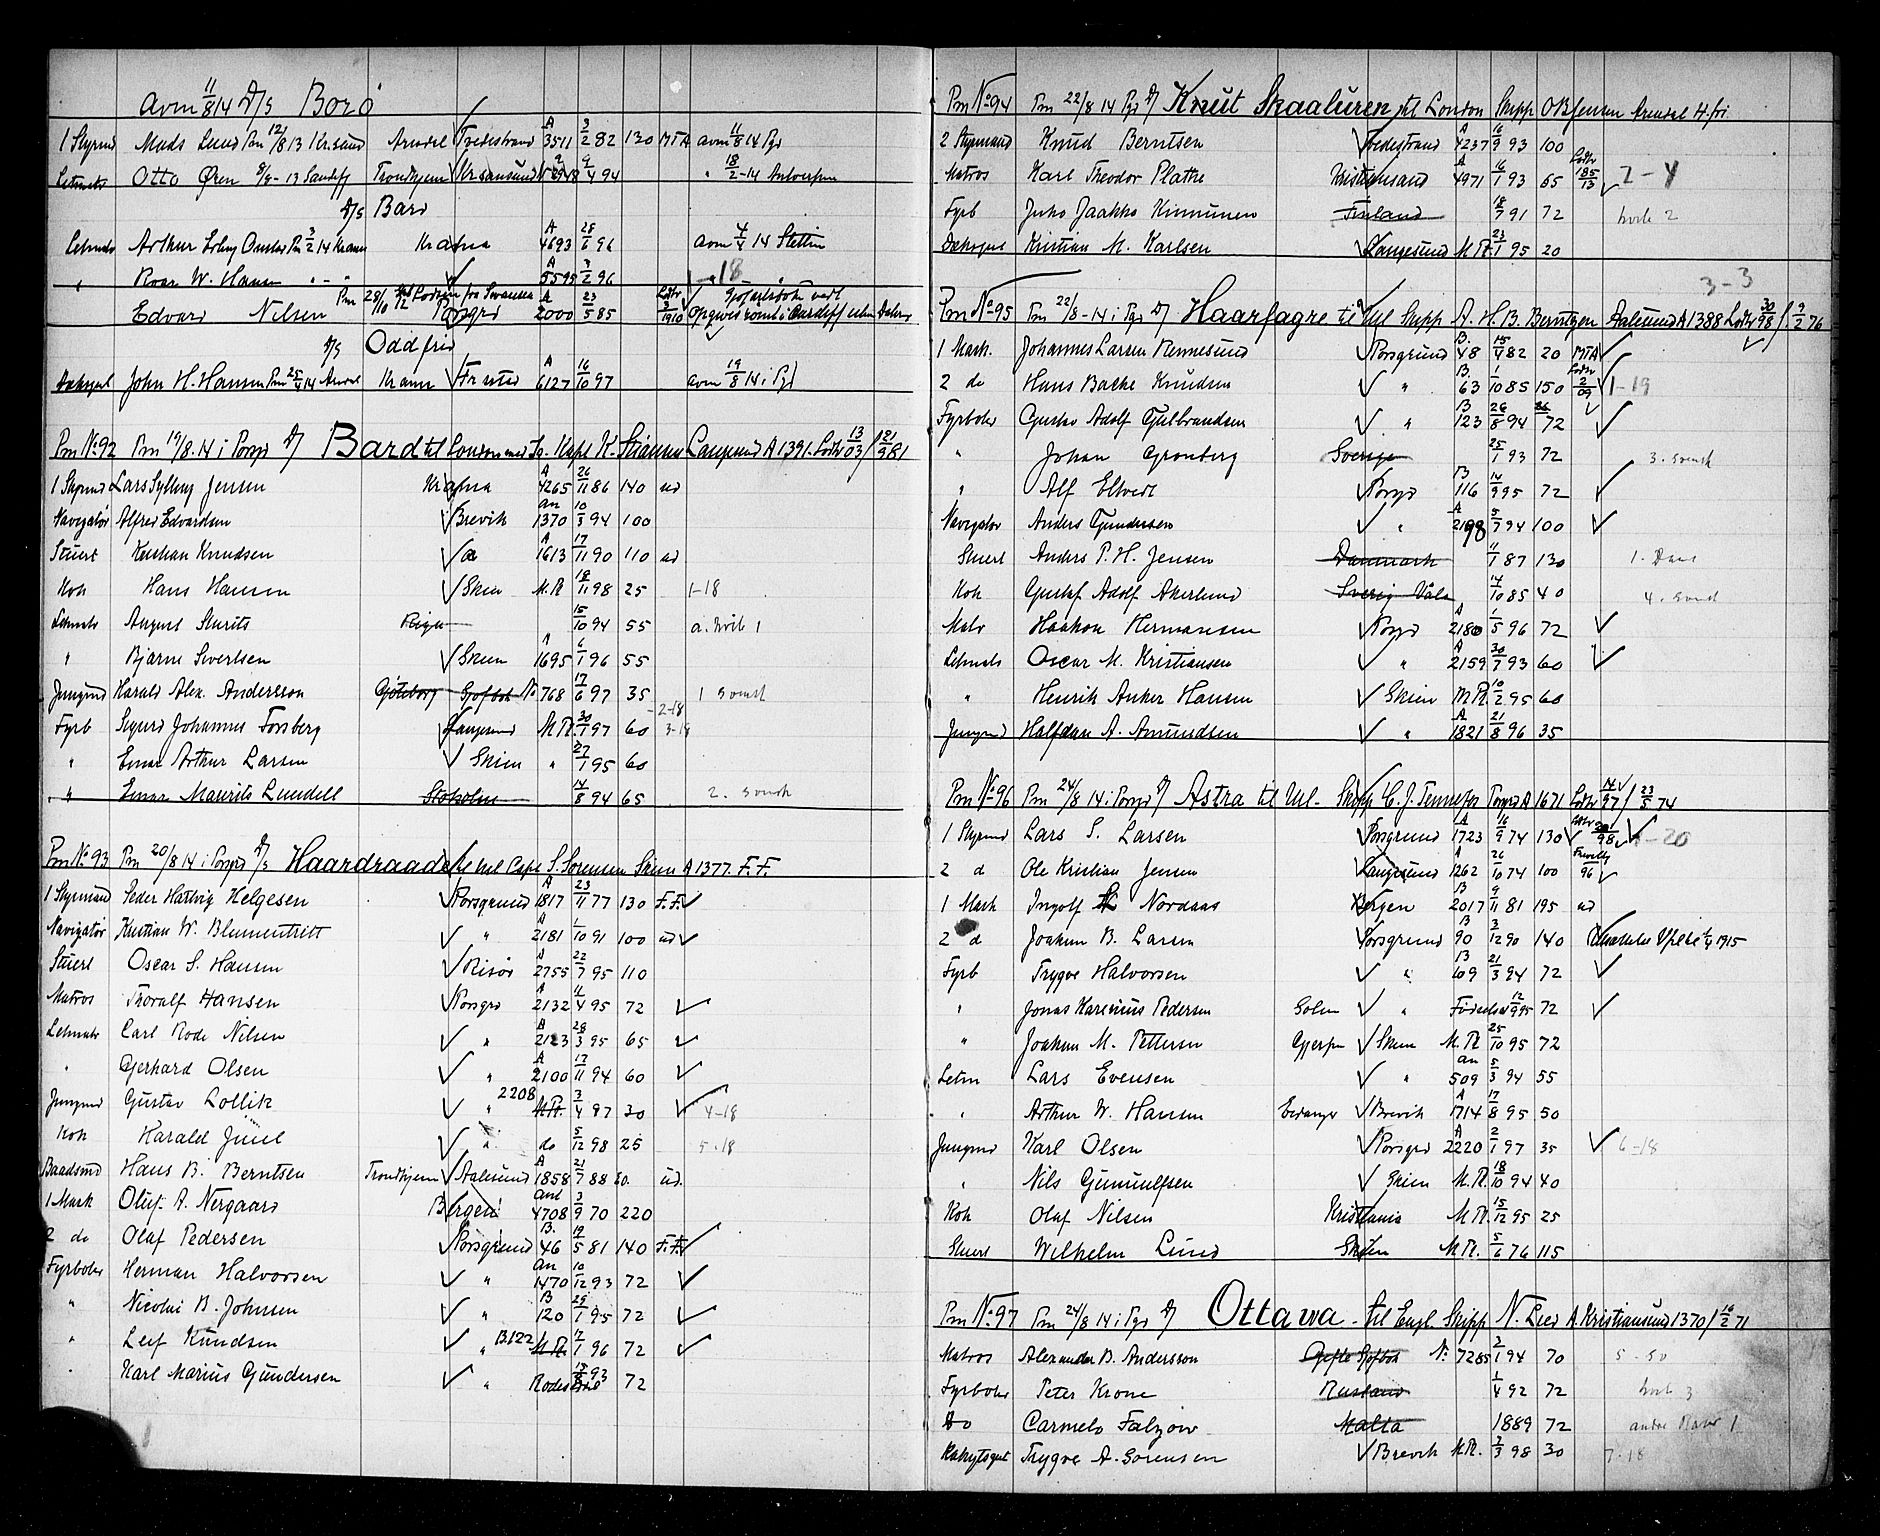 avm 11/8 14 D/S Borö
1 Styrmd Mads Lund Pm 12/8 13 Kr.sand Arendal Tvedestrand A 3511 3/2 82 130 MTA avm 11/8 14 Pgr
Letmats Otto Ören 8/9-13 Sandefj Trondhjem Kr.sansund 9/4 94 " 18/2-14 Antwerpen
D/S Bard
Letmads Arthur Erling Pm 3/2 14 Krania A 4693 28/6 96 avm 4/4 14 Stettin
" Roar W. Hansen " - " A 5595 3/2 96 1-18 "
Edvard Nilsen Pm 28/10 12 fra Swansea Porsgrd A 2000 23/5 85 Lodtv 3/1910 Cardiff
D/S Oddfrid
Dæksgut John H. Hansen Pm 25/4 14 Arendal Krania Fr.stad 6127 16/10 97 avm 19/8 14 i Pgr
Pm No 92 Pm 19/8. 14 i Porsgr D/S Bard til London med Is. Kapt K. Langesund A 1391. Lodtv 13/03 / 21/9 81
1 Styrmd Lars Sylling Jensen Krania A 4265 26/11 86 140 ud
Navigatör Alfred Edvardsen Brevik An 1370 10/3 94 100
Stuert Kristian Knudsen A 1613 17/11 90 110 ud
Kok Hans Hansen Skien M.R 18/11 98 25 1-18
Letmats August Sturits Riga 15/10 94 55 a. hvit 1
" Bjarne Sivertsen Skien A 1695 6/1 96 55
Jungmd Harald Alex. Andersson Göteborg Sjöfbok No 768 17/6 97 35 1 svensk
Fyrb Sigurd Johannes Forsberg Langesund M.R. 30/7 97 60 2-18 3-18
" Einar Arthur Larsen Skien " 27/1 95 60
" Einar Maurits Lundell Stokolm 14/8 94 65 2. svensk
Pm No 93 Pm 20/8 14 i Porsgr D/S Haardraade til Hul Capt S. Sörensen Skien A 1377. F.F.
1 Styrmand Peder Hartvig Helgesen Porsgrund A 1817 23/11 77 130 F.F.
Navigatör Kristian W. Blumentritt " A 2181 1/10 91 100 ud
Stuert Oscar S. Hansen Risör A 2755 22/7 95 110
Matros Thoralf Hansen Porsgrd A 2132 11/4 95 72
Letmats Carl Rode Nilsen " A 2123 28/3 95 65
" Gerhard Olsen " A 2100 17/11 94 60
Jungmd Gustav Lollik " 2208 M.R. 3/4 97 30 4-18
Kok Harald Juul " do 5/12 98 25 5-18
Baadsmd Hans B. Berntsen Trondhjem Aalesund A 1858 21/7 88 80. ud.
1 Mask Oluf. A. Nergaard Bergen Anl 4708 3/9 70 220
2 do Olaf Pedersen Porsgrund B. 46 19/5 81 140 F.F.
Fyrböter Herman Halvorsen " An 1470 10/12 93 72
" Nicolai B. Johnsen " B 120 29/1 95 72
" Leif Knudsen " B.122 M.R. 7/1 96 72
" Karl Marius Gundersen " 93 72
Pm No 94 Pm 22/8 14 Pgr D/S Knut Skaaluren til London Skipp O B Jensen Arendal H.fri.
2 Styrmand Knud Berntsen Tvedestrand A 4237 16/9 93 100
Matros Karl Theodor Platke Kristiansand A 4971 16/1 93 65 Lodtv 185/13 2-4
Fyrb Juho Jaakko Kinnunen Finland 18/7 91 72 hvit 2
Dæksgut Kristian M. Karlsen Langesund M.R. 23/1 95 20
3-3
Pm No 95 Pm 22/8-14 i Pgr D/S Haarfagre til Hul Skipp A. H. B. Berntzen Aalesund A 1388 Lodtv 30/98 / 9/2 76
1 Mask. Johannes Larsen Rennesund Porsgrund B. 48 15/4 82 20 MTA
2 do Hans Backe Knudsen " B. 63 1/10 85 150 Lodtv 2/09 1-19
Fyrböter Gustav Adolf Gulbrandsen " B 123 26/8 94 72
" Johan Gronberg Sverige 25/1 93 72 3. svensk
" Alf Eltvedt Porsgr B 116 14/9 95 72
Navigatör Anders Gundersen " A 2198 5/7 94 100
Stuert Anders P. H. Jensen Danmark 11/1 87 130 1. Dans
Kok Gustaf Adolf Akerlund Sverig 14/10 85 40 4. svensk
Matr Haakon Hermansen Porsgr A 2180 1/5 96 72
Letmats Oscar M. Kristiansen " A 2159 30/7 93 60
" Henrik Anker Hansen Skien M.R 10/2 95 60
Jungmd Halfdan A. Amundsen " A 1821 21/8 96 35
Pm No 96 Pm 24/8 14 i Porsgr D/S Astra til Hul - Skipp C. J. Porsgrd A 1671 Lodtv 14/97 / 23/5 74
1 Styrmd Lars S. Larsen Porsgrund A 1723 16/9 74 130 Lodtv 98 -20
2 d Ole Kristian Jensen Langesund A 1262 26/10 74 100 96
1 Mask Ingolf Nordaas Bergen B 2017 9/11 81 195 ud
2 d Joakim B. Larsen Porsgrund B 90 3/12 90 140 1915
Fyrb Trygve Halvorsen " B 109 21/3 94 72
" Jonas Karinius Pedersen Solum " 12/9 95 72
" Joakim M. Pettersen Gjerpen Skien M.R 25/10 95 72
Letm Lars Evensen " An 509 5/3 94 55
" Arthur W. Hansen Eidanger Brevik A 1714 17/8 95 50
Jungmd Karl Olsen Porsgrd A 2220 2/1 97 35 6-18
" Nils Gunnulfsen Skien M.R. 18/10 94 40
Kok Olaf Nilsen Kristiania M.R. 15/12 95 25
Stuert Wilhelm Lund Skien M.R. 5/6 76 115
Pm No 97 Pm 24/8 14 i Pgr D/S Ottawa - til Engl. Skipp N. Lied A. Kristiansund 1370 / 16/2 71
Matros Alexander B. Andersson Gefle Sjöfbok No 7285 3/1 94 70 5-50
Fyrböter Peter Krone Rusland 1/4 92 72 hvit 3
Do Carmelo Falzow Malta 1889 72 andre Raser 1
Kahytsgut Trygve A. Sörensen Brevik M.R. 3/3 98 30 7-18